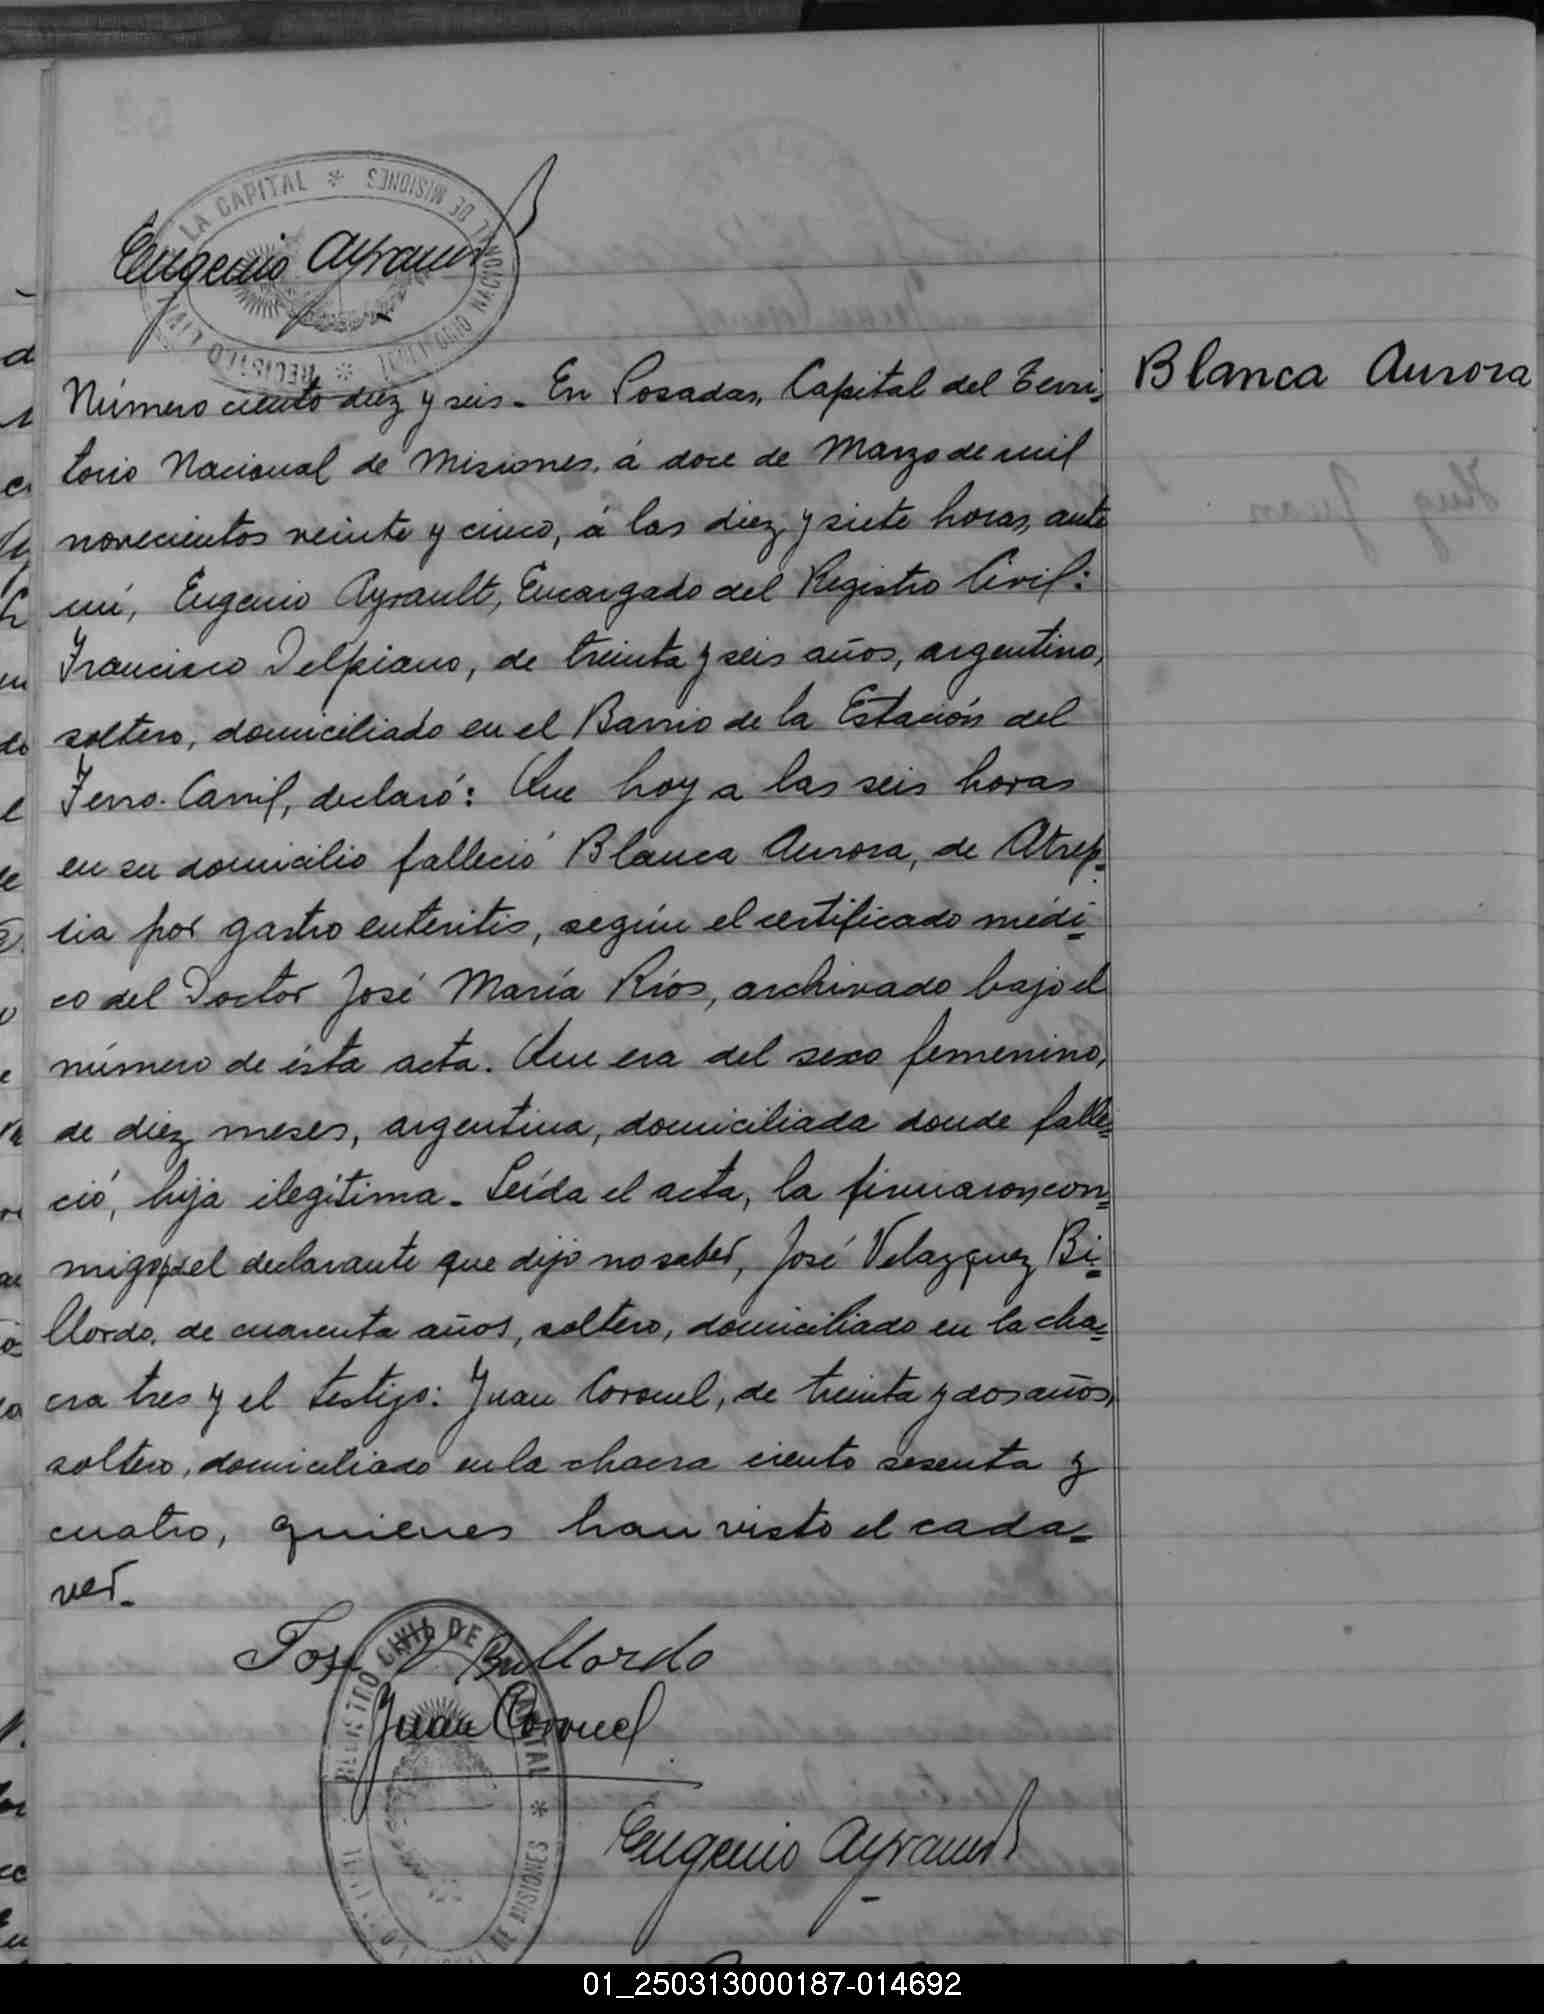 LA CAPITAL * TERRITORIO NACIONAL DE MISIONES * REGISTRO CIVIL
Eugenio Ayrault
Blanca Aurora
Número ciento diez y seis. En Posadas, Capital del Terri=
torio Nacional de Misiones, á doce de Marzo de mil
novecientos veinte y cinco, á las diez y siete horas, ante
mí, Eugenio Ayrault, Encargado del Registro Civil:
Francisco Delpiano, de treinta y seis años, argentino,
soltero, domiciliado en el Barrio de la Estación del
Ferro-Carril, declaró: Que hoy a las seis horas
en su domicilio falleció Blanca Aurora, de Atrep=
sia por gastro enteritis, según el certificado médi=
co del Doctor José María Ríos, archivado bajo el
número de ésta acta. Que era del sexo femenino,
de diez meses, argentina, domiciliada donde falle=
ció, hija ilegítima. Leída el acta, la firmaron con=
migo, por el declarante que dijo no saber, José Velazquez Bi=
llordo, de cuarenta años, soltero, domiciliado en la cha=
cra tres y el testigo: Juan Coronel, de treinta y dos años,
soltero, domiciliado en la chacra ciento sesenta y
cuatro, quienes han visto el cada=
ver.
Jose V. Billordo
Juan Coronel
REGISTRO CIVIL DE LA CAPITAL * TERRITORIO NACIONAL DE MISIONES
Eugenio Ayrault
01_250313000187-014692